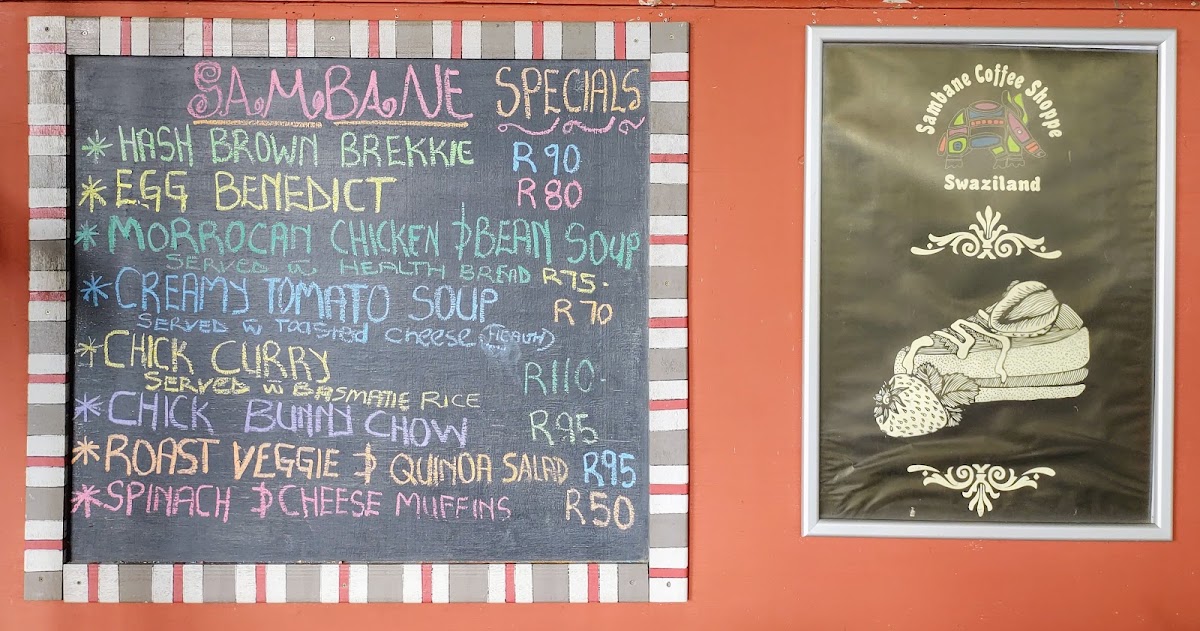 SAMBANE SPECIALS
* HASH BROWN BREKKIE R90
* EGG BENEDICT R80
* MORROCAN CHICKEN & BEAN SOUP
SERVED w HEALTH BREAD R75-
* CREAMY TOMATO SOUP R70
SERVED w Toasted cheese (HEALTH)
* CHICK CURRY R110-
SERVED w BASMATIE RICE
* CHICK BUNNY CHOW R95
* ROAST VEGGIE & QUINOA SALAD R95
* SPINACH & CHEESE MUFFINS R50
Sambane Coffee Shoppe
Swaziland